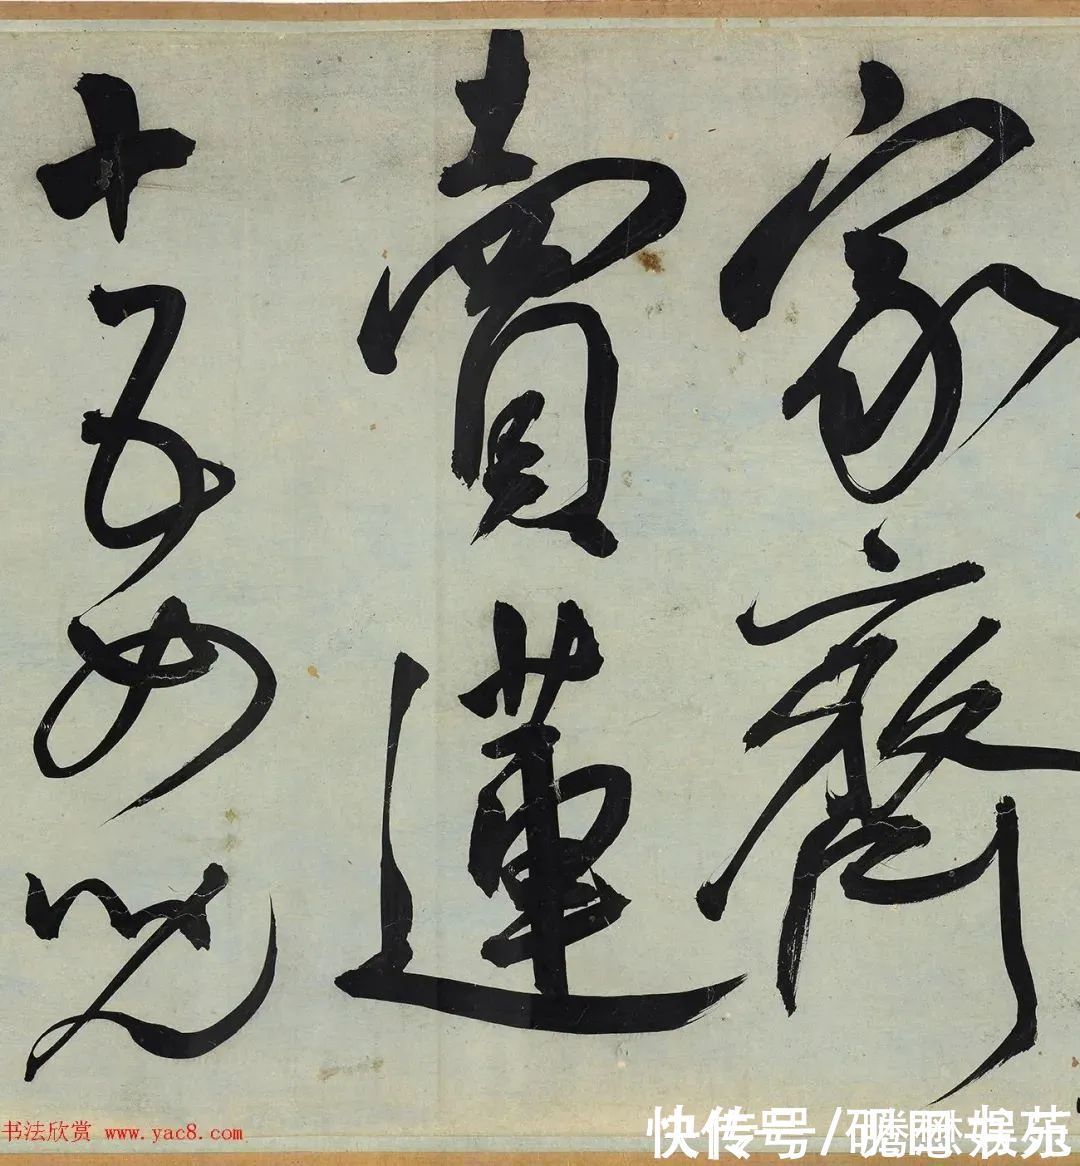 家齊
賣蓮
十五女兒
书法欣赏 www.yac8.com
快传号/